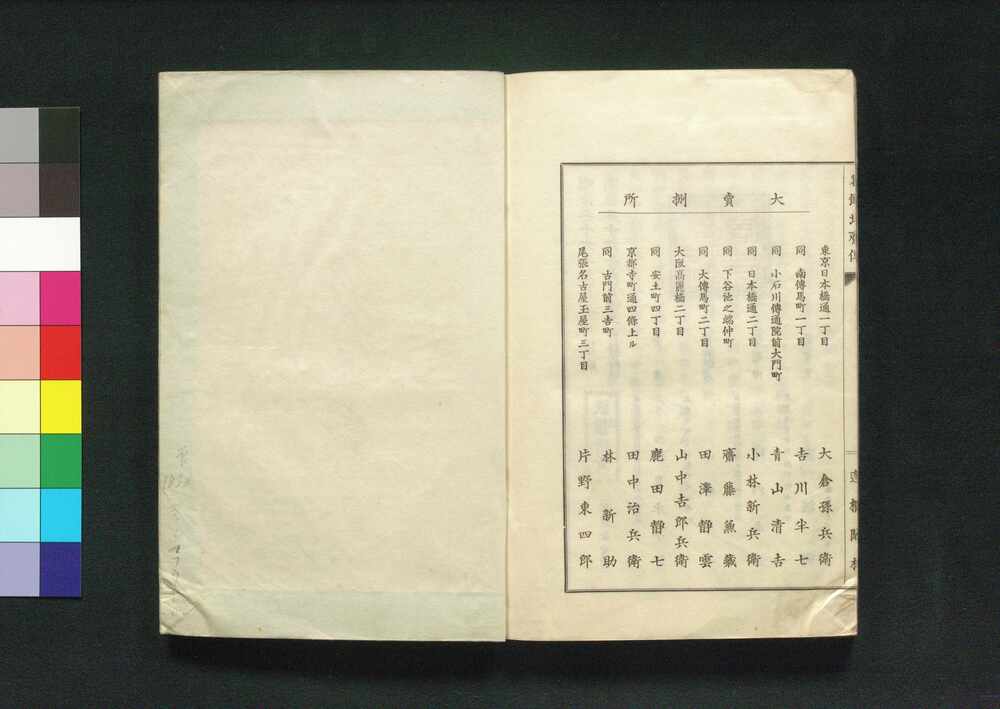 大賣捌所
東京日本橋通一丁目 大倉孫兵衛
同 南傳馬町一丁目 吉川半七
同 小石川傳通院前大門町 青山清吉
同 日本橋通二丁目 小林新兵衛
同 下谷池之端仲町 齋藤兼藏
同 大傳馬町二丁目 田澤静雲
大阪高麗橋二丁目 山中吉郎兵衛
同 安土町四丁目 鹿田静七
京都寺町通四條上ル 田中治兵衛
同 古門前三吉町 林新助
尾張名古屋玉屋町三丁目 片野東四郎